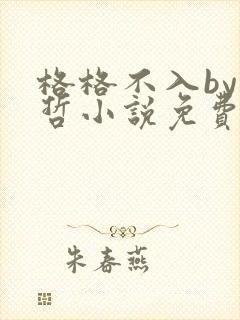 格格不入by
哲小說免費
朱春燕